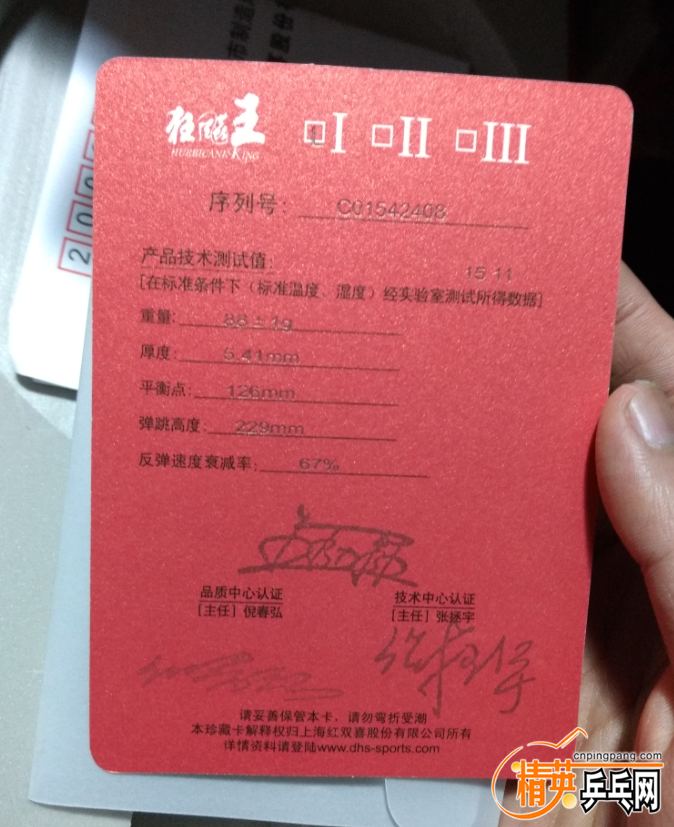 市制造
股份有
200
狂飚王
HURRICANE KING
□I □II □III
序列号: C01542408
产品技术测试值: 15 11
[在标准条件下（标准温度、湿度）经实验室测试所得数据]
重量: 88±1g
厚度: 5.41mm
平衡点: 126mm
弹跳高度: 229mm
反弹速度衰减率: 67%
品质中心认证 技术中心认证
[主任] 倪春弘 [主任] 张拯宇
请妥善保管本卡，请勿弯折受潮
本珍藏卡解释权归上海红双喜股份有限公司所有
详情资料请登陆www.dhs-sports.com
cnpingpang.com
精英乒乓网